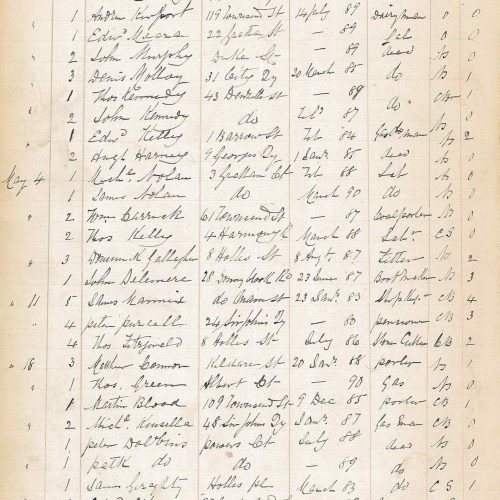 1 Andrew Kinport 119 Townsend St 14 July 89 Dairyman 0 0
1 Edwd Meara 22 St — 89 Lab 0 0
2 John Murphy Duke St — 89 dead No 0
3 Denis Molloy 31 City Qy 20 March 85 do No 1
1 Thos Kennedy 43 Denzille St — 89 CB 1
2 John Kennedy do Feb 87 do No 0
1 Edwd Kelly 1 Barrow St Feb 84 No 2
2 Hugh Harney 9 Georges Qy 1 Janr 85 dead No 0
May 4 1 Michl Nolan 3 Grattan Ct Feb 68 Lab No 0
1 James Nolan do March 90 do No 0
" 2 Wm Carrick 61 Townsend St — 87 Coalporter No 0
2 Thos Kelly 4 Harmony March 88 Labr CS 0
" 3 Dominick Gallagher 8 Hollis St 8 Augt 87 fitter No 2
1 John Delemere 28 Donnybrook Rd 23 June 87 Bootmaker No 3
" 11 5 James Mannix do Main St 23 Janr 83 Shopkpr CB 4
4 peter purcell 24 Sir Johns Qy — 80 pensioner CB 3
4 Thos Fitzgerald 8 Hollis St July 86 Stone Cutter CB 2
" 18 3 Matthew Connor Kildare St 20 Janr 88 porter No 1
" 1 Thos. Green Albert Ct — 90 Gas No 0
1 Martin Blood 109 Townsend St 9 Dec 85 porter CB 1
" 2 Michl Kinsella 48 Sir Johns Qy Janr 87 Gas man CB 0
1 peter Dobbins powers Ct July 88 dead No 0
" 1 patk do do — 89 do No 0
" 1 James Geraghty Hollis pl March 83 do CS 1